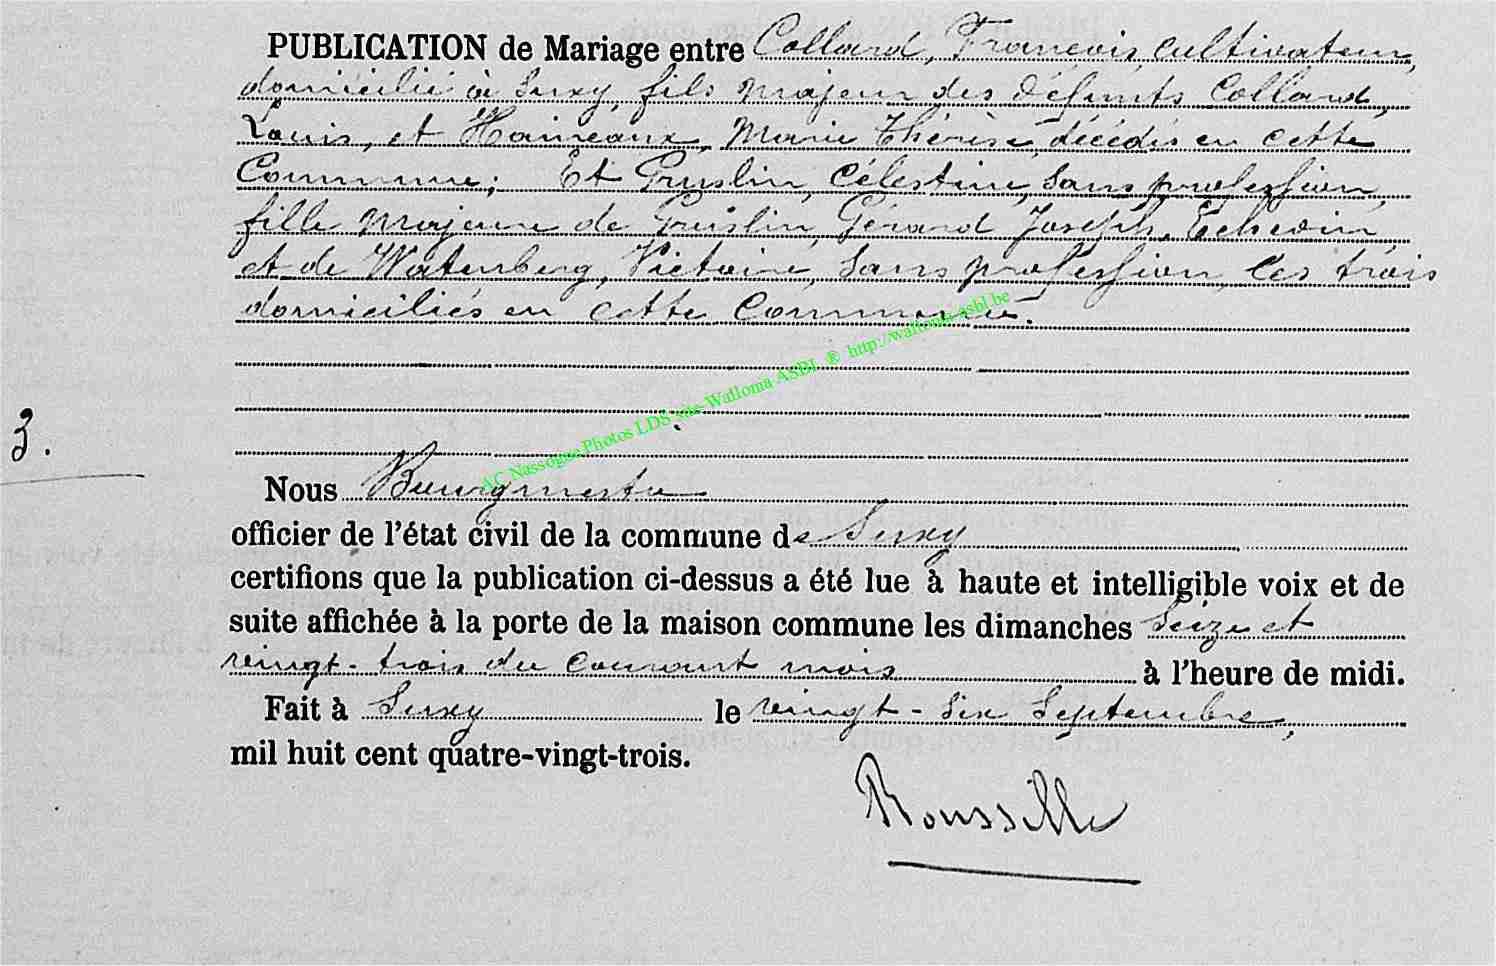 PUBLICATION de Mariage entre Collard, François, cultivateur,
domicilié à Suxy, fils majeur des défunts Collard,
Louis, et Haineaux, Marie Thérèse, décédés en cette
Commune; Et Gruslin, Célestine, sans profession,
fille majeure de Gruslin, Gérard Joseph, Echevin,
et de Watenberg, Victoire, sans profession, les trois
domiciliés en cette Commune.
AC Nassogne Photos LDS site Wallonia ASBL ® http://wallonia-asbl.be
3.
Nous Bourgmestre
officier de l'état civil de la commune de Suxy
certifions que la publication ci-dessus a été lue à haute et intelligible voix et de
suite affichée à la porte de la maison commune les dimanches Seize et
vingt-trois du courant mois à l'heure de midi.
Fait à Suxy le vingt-six Septembre,
mil huit cent quatre-vingt-trois.
Rousselle